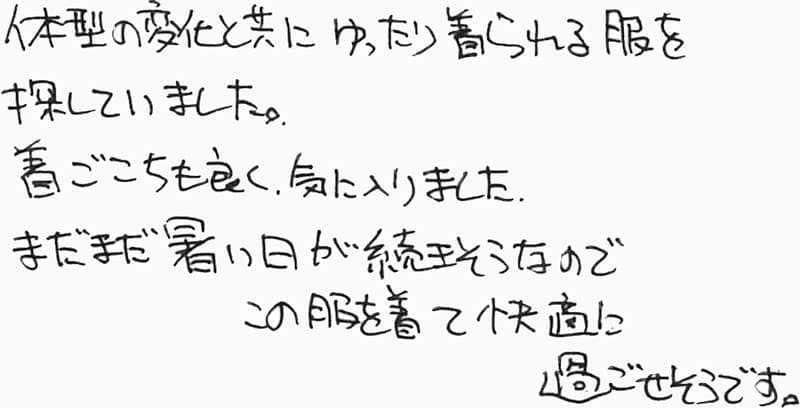 体型の変化と共に ゆったり着られる服を
探していました。
着ごこちも良く、気に入りました。
まだまだ暑い日が続きそうなので
この服を着て快適に
過ごせそうです。